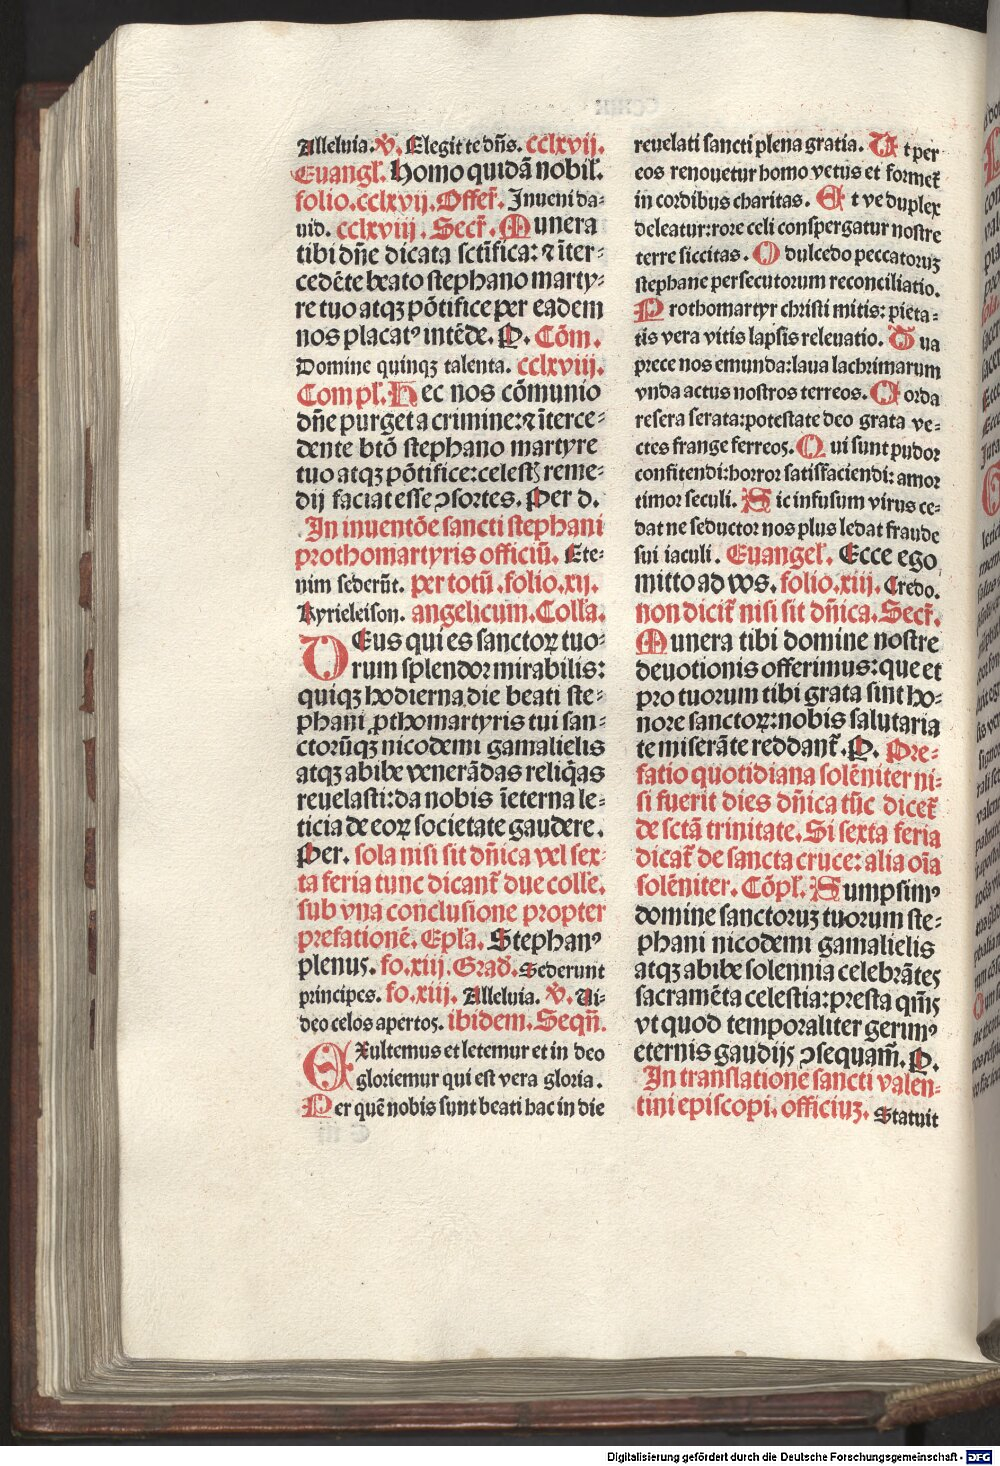 Alleluia. ℣. Elegit te dñs. cclxvij.
Euangl̃. Homo quidã nobil̃.
folio.cclxvij. Offer̃. Inueni da⸗
uid. cclxviij. Secr̃. Munera
tibi dñe dicata sctĩfica: ⁊ ĩter⸗
cedẽte beato stephano marty⸗
re tuo atqꝫ põtifice per eadem
nos placatꝰ intẽde. P. Cõm.
Domine quinqꝫ talenta. cclxviij.
Compl̃. Hec nos cõmunio
dñe purget a crimine: ⁊ ĩterce⸗
dente btõ stephano martyre
tuo atqꝫ põtifice: celestꝭ reme⸗
dij faciat esse ꝯsortes. Per d.
In inuentõe sancti stephani
prothomartyris officiũ. Ete⸗
nim sederũt. per totũ. folio.xij.
Kyrieleison. angelicum. Colla.
DEus qui es sanctoꝝ tuo⸗
rum splendor mirabilis:
quiqꝫ hodierna die beati ste⸗
phani ꝓthomartyris tui san⸗
ctorũqꝫ nicodemi gamalielis
atqꝫ abibe venerãdas reliq̃as
reuelasti: da nobis ĩ eterna le⸗
ticia de eoꝝ societate gaudere.
Per. sola nisi sit dñica vel sex⸗
ta feria tunc dicant̃ due colle.
sub vna conclusione propter
prefationẽ. Epl̃a. Stephanꝰ
plenus. fo.xiij. Grad̃. Sederunt
principes. fo.xiij. Alleluia. ℣. Ui⸗
deo celos apertos. ibidem. Seqñ.
EXultemus et letemur et in deo
gloriemur qui est vera gloria.
Per quẽ nobis sunt beati hac in die
reuelati sancti plena gratia. Ut per
eos renouetur homo vetus et formet̃
in cordibus charitas. Et ve duplex
deleatur: rore celi conspergatur nostre
terre siccitas. O dulcedo peccatoruꝫ
stephane persecutorum reconciliatio.
Prothomartyr christi mitis: pieta⸗
tis vera vitis lapsis releuatio. Tua
prece nos emunda: laua lachrimarum
vnda actus nostros terreos. Corda
resera serata: potestate deo grata ve⸗
ctes frange ferreos. Qui sunt pudor
confitendi: horror satisfaciendi: amor
timor seculi. Sic infusum virus ce⸗
dat ne seductor nos plus ledat fraude
sui iaculi. Euangel̃. Ecce ego
mitto ad vos. folio.xiij. Credo.
non dicit̃ nisi sit dñica. Secr̃.
Munera tibi domine nostre
deuotionis offerimus: que et
pro tuorum tibi grata sint ho⸗
nore sanctoꝝ: nobis salutaria
te miserãte reddant̃. P. Pre⸗
fatio quotidiana solẽniter ni⸗
si fuerit dies dñica tũc dicet̃
de sctã trinitate. Si sexta feria
dicat̃ de sancta cruce: alia oĩa
solẽniter. Cõpl̃. Sumpsimꝰ
domine sanctoruꝫ tuorum ste⸗
phani nicodemi gamalielis
atqꝫ abibe solennia celebrãtes
sacramẽta celestia: presta q̃ms
vt quod temporaliter gerimꝰ
eternis gaudijs ꝯsequam̃. P.
In translatione sancti valen⸗
tini episcopi. officiuꝫ. Statuit
Digitalisierung gefördert durch die Deutsche Forschungsgemeinschaft - DFG